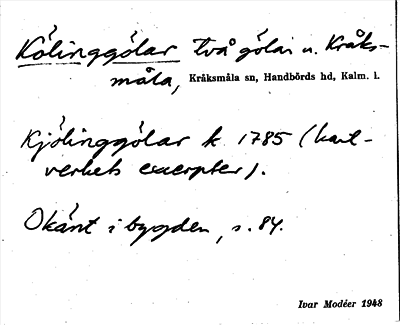 Kölinggölar två gölar n. Kråks-
måla, Kråksmåla sn, Handbörds hd, Kalm. l.
Kjölinggölar k 1785 (kart-
verkets excerpter).
Okänt i bygden, s. 84.
Ivar Modéer 1948